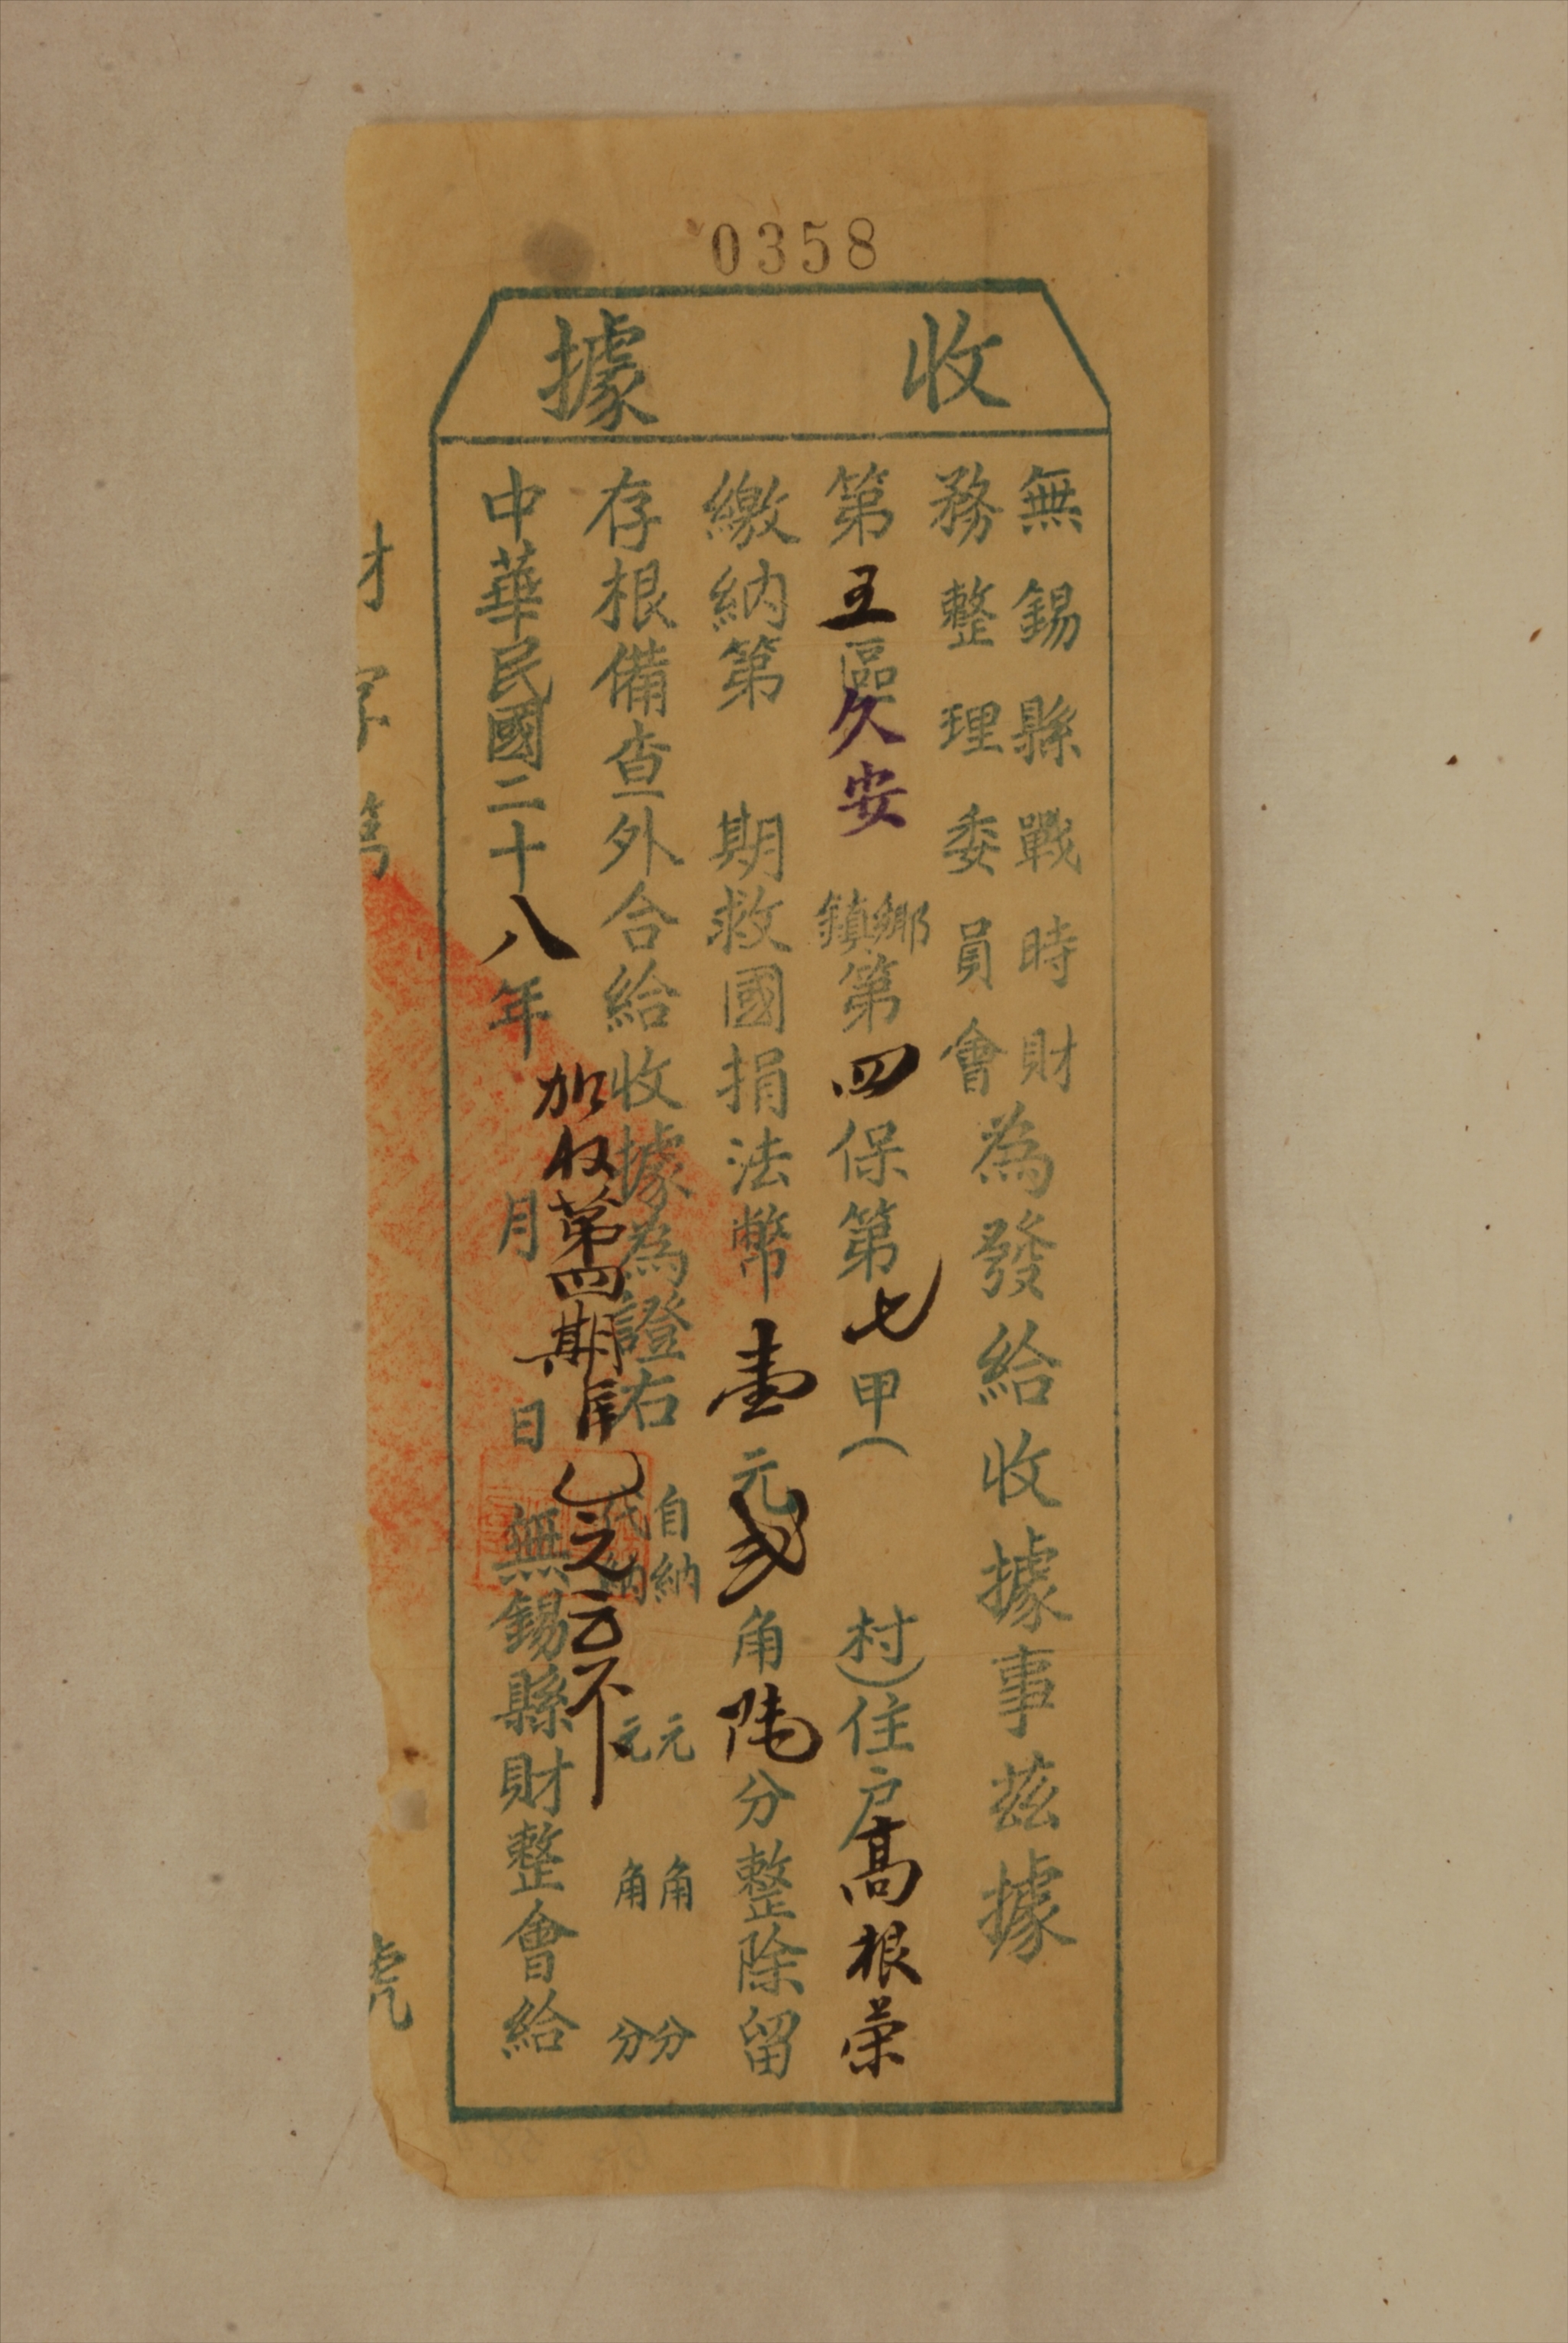 0358
收據
無錫縣戰時財
務整理委員會
為發給收據事茲據
第五區久安鄉鎮第四保第七甲（村）住户高根荣
繳納第期救國捐法幣壹元弍角陸分整除留
存根備查外合給收據為證右
自納元角分
代納元角分
加收第四期
中華民國二十八年月日無錫縣財整會給
財字第號